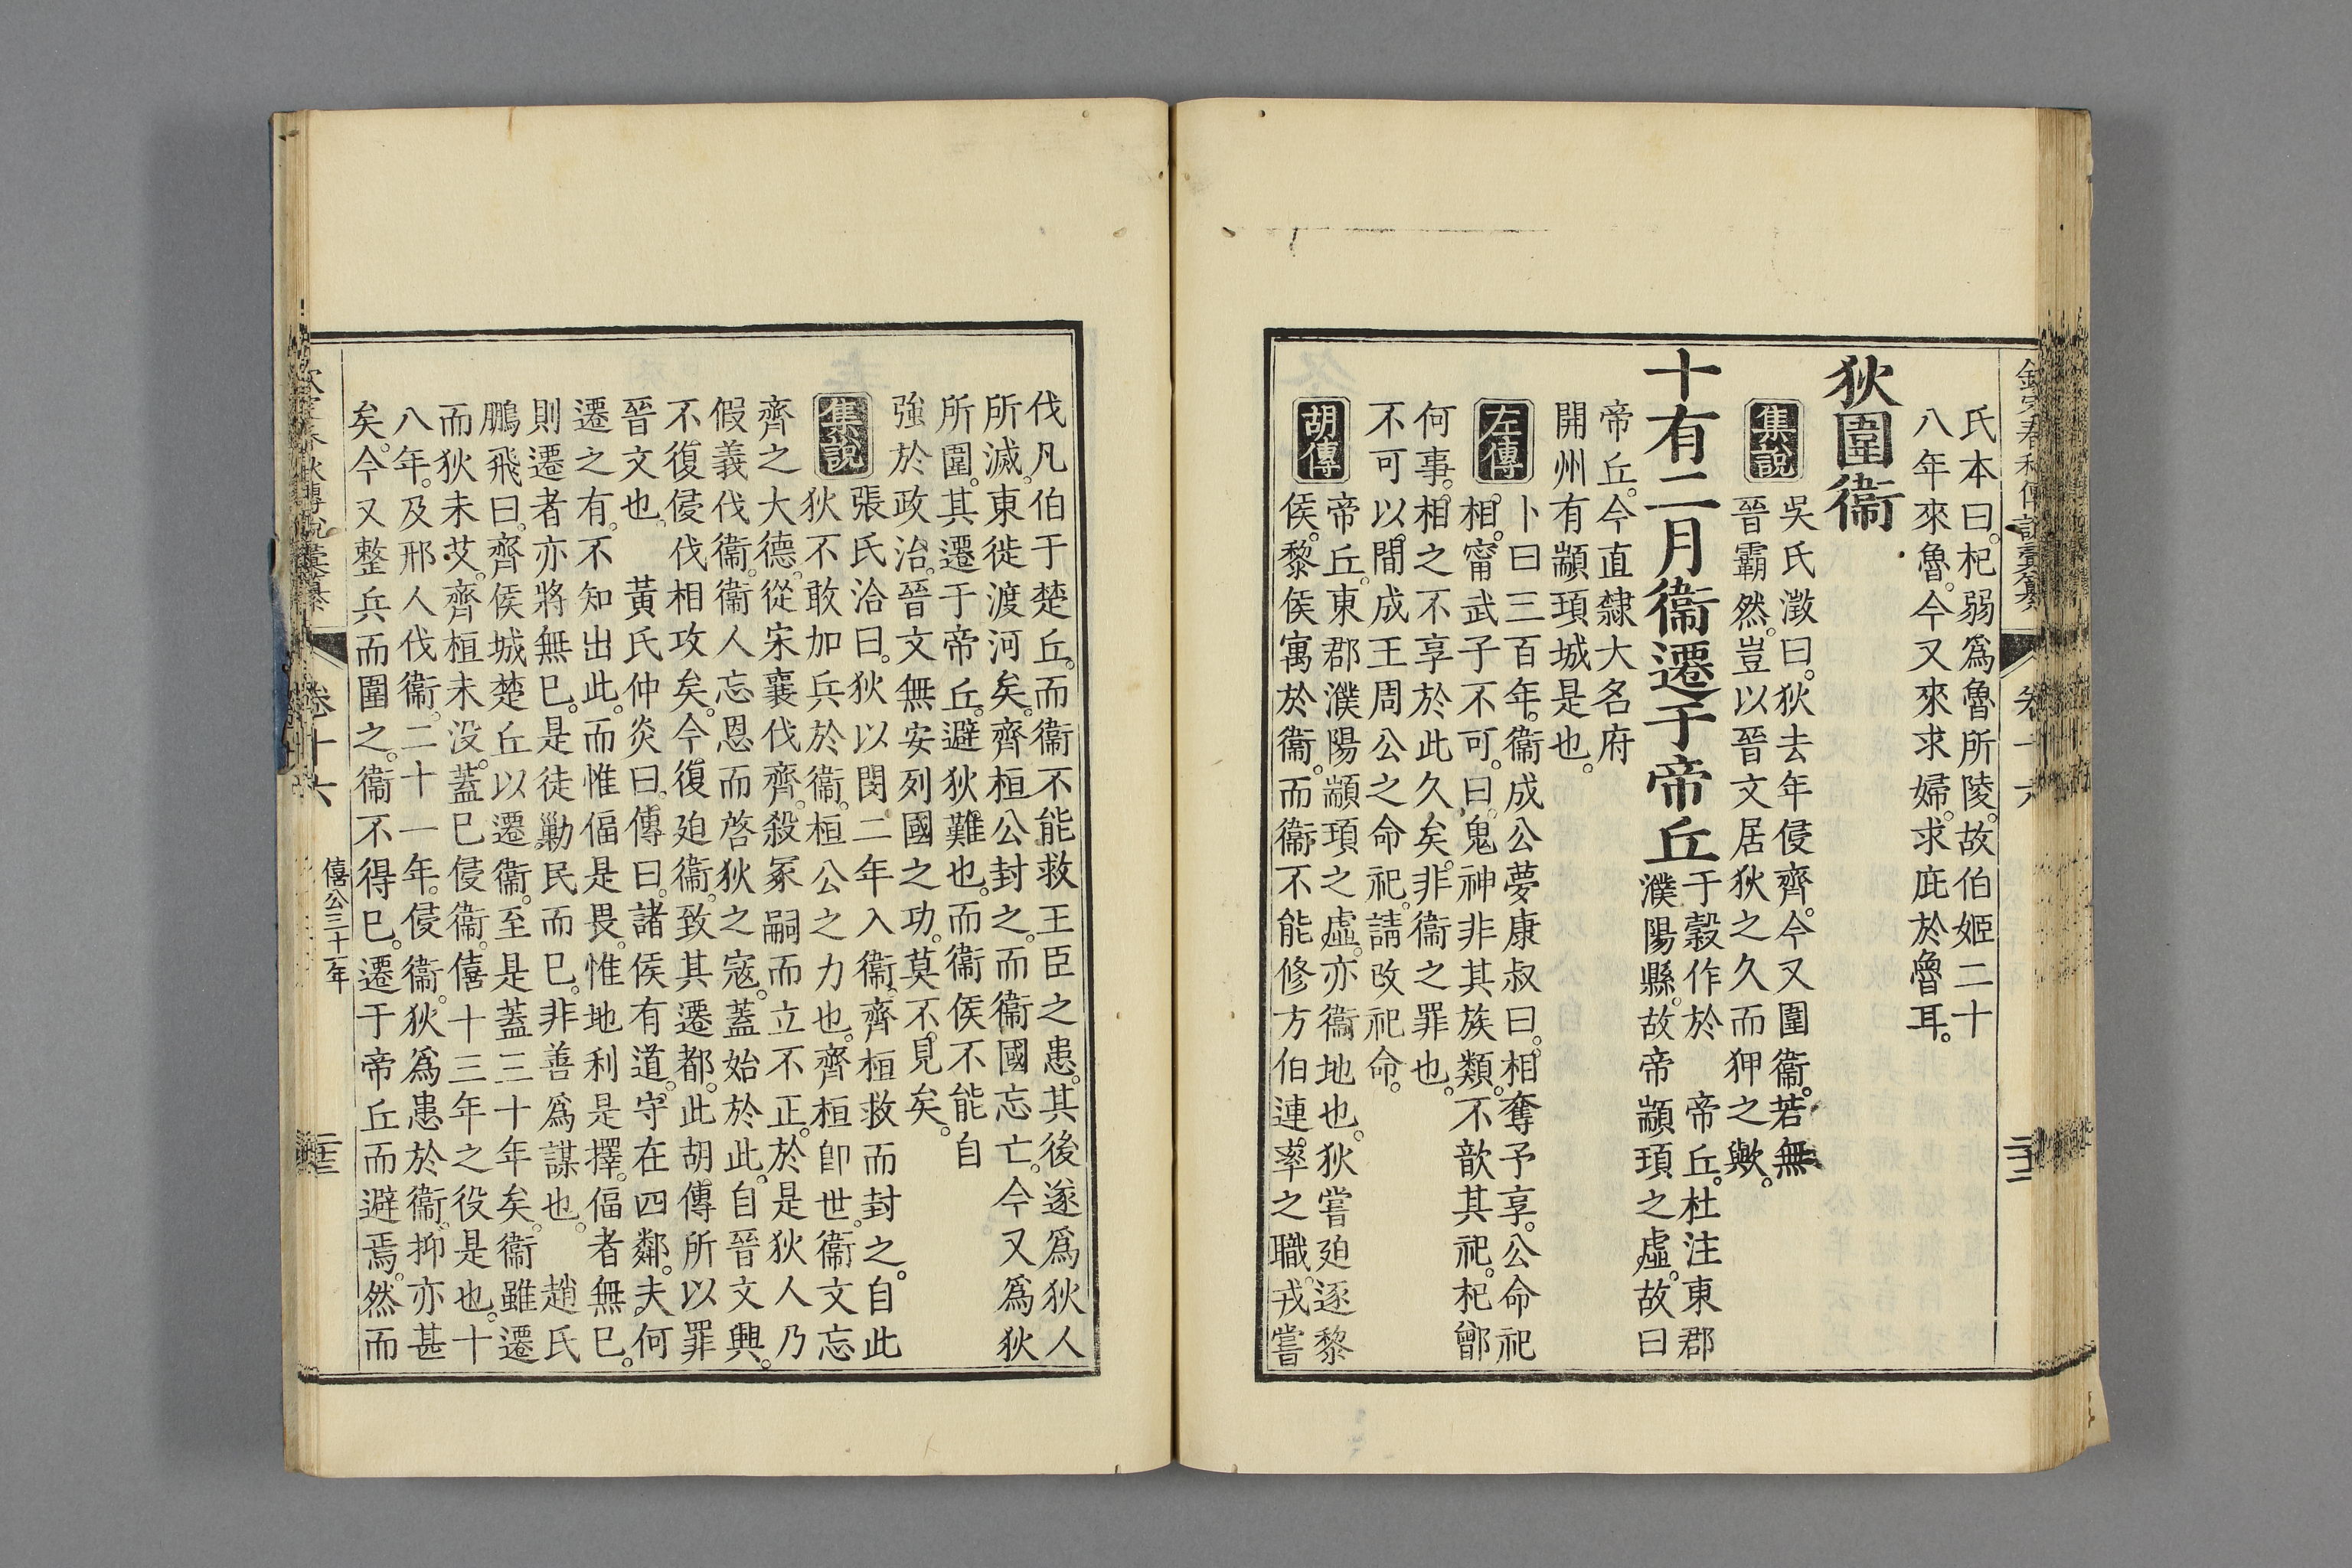 氏本曰。杞弱爲魯所陵。故伯姬二十
八年來魯。今又來求婦。求庇於魯耳。
狄圍衞
集說
吳氏澂曰。狄去年侵齊。今又圍衞。若無
晉霸然。豈以晉文居狄之久而狎之歟。
十有二月衞遷于帝丘
于穀作於
帝丘。杜注東郡
濮陽縣。故帝顓頊之虛。故曰
帝丘。今直隸大名府
開州有顓頊城是也。
左傳
卜曰三百年。衞成公夢康叔曰。相奪予享。公命祀
相。甯武子不可。曰。鬼神非其族類。不歆其祀。杞鄫
何事。相之不享於此久矣。非衞之罪也。
不可以閒成王周公之命祀。請改祀命。
胡傳
帝丘。東郡濮陽顓頊之虛。亦衞地也。狄嘗廹逐黎
侯。黎侯寓於衞。而衞不能修方伯連率之職。戎嘗
伐凡伯于楚丘。而衞不能救王臣之患。其後遂爲狄人
所滅。東徙渡河矣。齊桓公封之。而衞國忘亡。今又爲狄
所圍。其遷于帝丘。避狄難也。而衞侯不能自
強於政治。晉文無安列國之功。莫不見矣。
集說
張氏洽曰。狄以閔二年入衞。齊桓救而封之。自此
狄不敢加兵於衞。桓公之力也。齊桓卽世。衞文忘
齊之大德。從宋襄伐齊。殺冢嗣而立不正。於是狄人乃
假義伐衞。衞人忘恩而啓狄之寇。蓋始於此。自晉文興。
不復侵伐相攻矣。今復廹衞。致其遷都。此胡傳所以罪
晉文也。 黃氏仲炎曰。傳曰。諸侯有道。守在四鄰。夫何
遷之有。不知出此。而惟偪是畏。惟地利是擇。偪者無已。
則遷者亦將無已。是徒勦民而已。非善爲謀也。 趙氏
鵬飛曰。齊侯城楚丘以遷衞。至是蓋三十年矣。衞雖遷
而狄未艾。齊桓未没。蓋已侵衞。僖十三年之役是也。十
八年。及邢人伐衞。二十一年。侵衞。狄爲患於衞。抑亦甚
矣。今又整兵而圍之。衞不得已。遷于帝丘而避焉。然而
卷十六
僖公三十一年
二十三